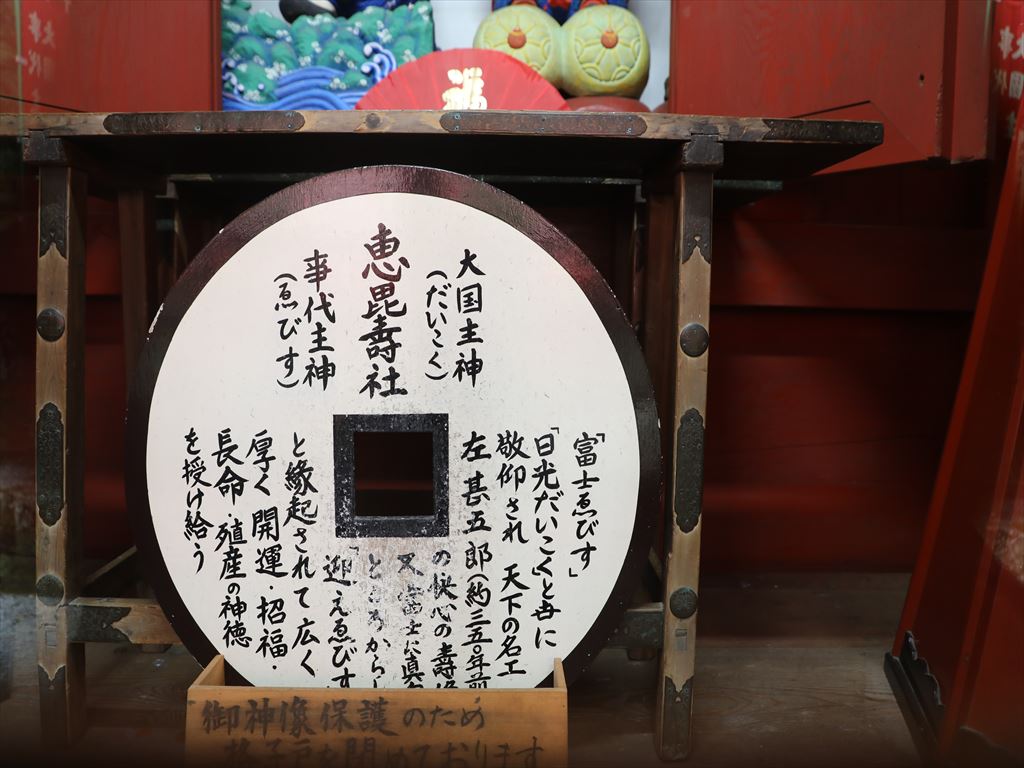 福
大国主神
(だいこく)
恵毘壽社
事代主神
(ゑびす)
「富士ゑびす」
「日光だいこくと毎に
敬仰され 天下の名工
左甚五郎(約三五〇年前
の快心の壽
又富士に真
ところからし
「迎えゑびす
と縁起されて広く
厚く開運・招福・
長命・殖産の神徳
を授け給う
御神像保護のため
格子戸を閉めております